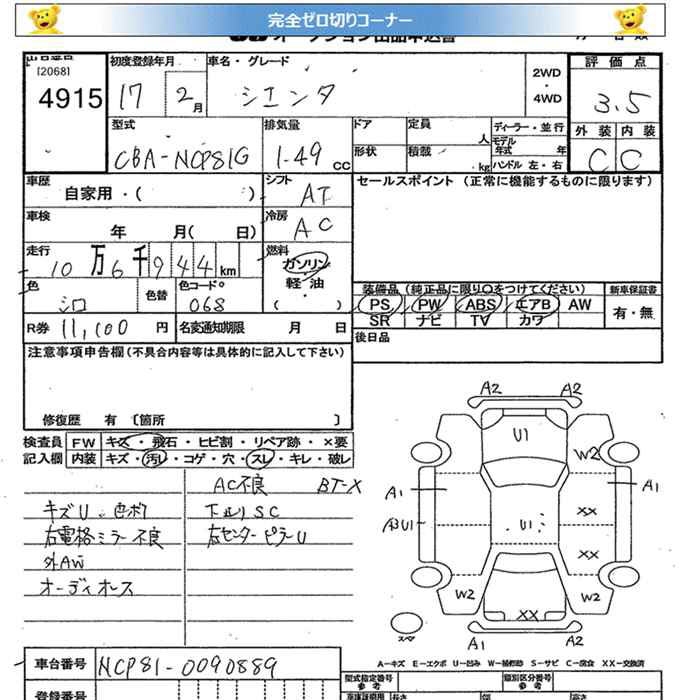 完全ゼロ切りコーナー
オークション出品申込書
出品番号 初度登録年月 車名・グレード 2WD ・ 4WD 評価点
[2068]
4915 17 2月 シエンタ 3.5
型式 排気量 ドア 定員 人 ディーラー・並行 外装 内装
CBA-NCP81G 1.49 cc 形状 積載 kg モデル年式 年 ハンドル 左・右 C C
車歴 自家用・( ) シフト AT セールスポイント (正常に機能するものに限ります)
車検 年 月( 日) 冷房 AC
走行 10万6千944km 燃料 ガソリン・軽油 ( )
色 シロ 色替 色コード 068 装備品 (純正品に限り○をつけてください) 新車保証書
PS PW ABS エアB AW 有・無
SR ナビ TV カワ
R券 11,100円 名変通知期限 月 日 後日品
注意事項申告欄(不具合内容等は具体的に記入して下さい)
修復歴 有 〔箇所 〕
検査員 FW キズ・飛石・ヒビ割・リペア跡・×要
記入欄 内装 キズ・汚レ・コゲ・穴・スレ・キレ・破レ
AC不良 BT-X
キズU 色ボケ 下廻りSC
右電格ミラー不良 右センターピラーU
外AW
オーディオレス
A2 A2
U1
W2
A1 A1
XX
U1
XX
W2 W2
XX
スペア
A1 A2
A-キズ E-エクボ U-凹み W-補修跡 S-サビ C-腐食 XX-交換済
車台番号 NCP81-0090889 型式指定番号 参考 類別区分番号 参考
登録番号 長さ 幅 高さ